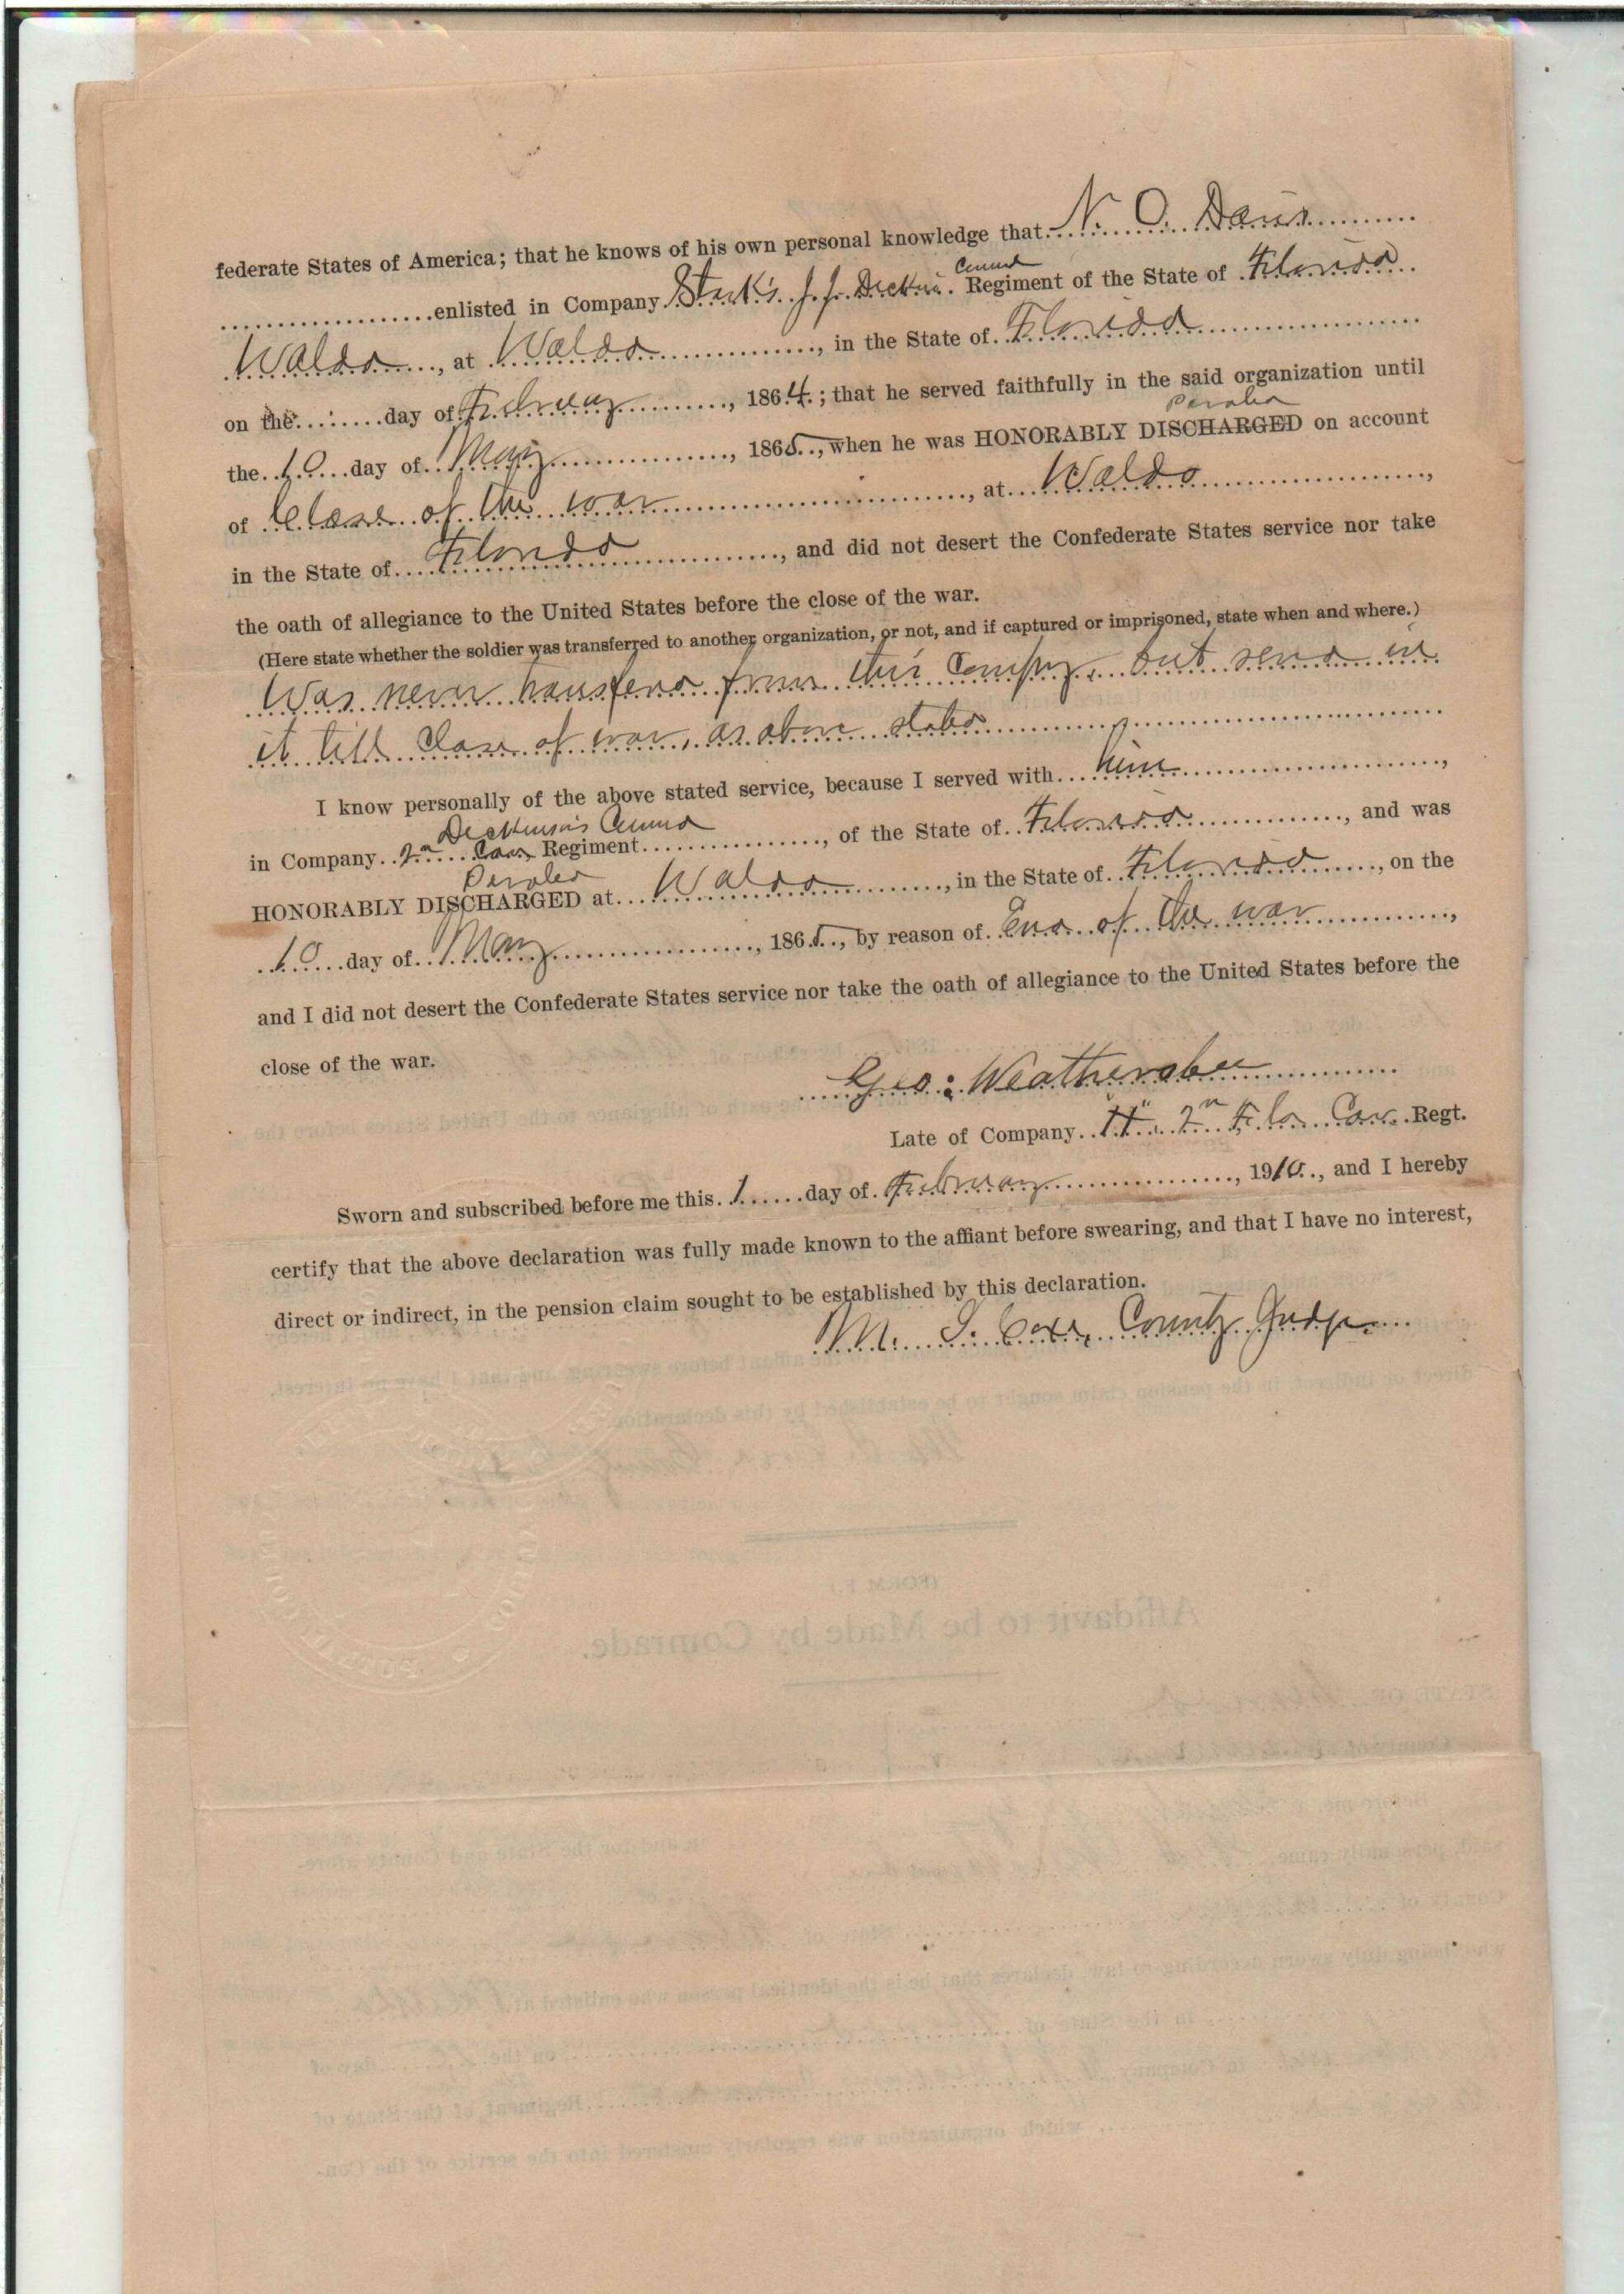 federate States of America; that he knows of his own personal knowledge that N. O. Davis
Comnd
enlisted in Company Stark's J. J. Dickin. Regiment of the State of Florida
Waldo, at Waldo, in the State of Florida
on the day of February, 1864; that he served faithfully in the said organization until
Paroled
the 10 day of May, 1865, when he was HONORABLY DISCHARGED on account
of Close of the war, at Waldo,
in the State of Florida, and did not desert the Confederate States service nor take
the oath of allegiance to the United States before the close of the war.
(Here state whether the soldier was transferred to another organization, or not, and if captured or imprisoned, state when and where.)
Was never transferd from this Company, but servd in
it till close of war, as above stated
I know personally of the above stated service, because I served with him,
Dickinson's Comnd
in Company 2nd Cav Regiment, of the State of Florida, and was
Paroled
HONORABLY DISCHARGED at Waldo, in the State of Florida, on the
10 day of May, 1865, by reason of End of the war,
and I did not desert the Confederate States service nor take the oath of allegiance to the United States before the
close of the war.
Geo: Weathersbee
Late of Company "H" 2n Fla Cav. Regt.
Sworn and subscribed before me this 1 day of February, 1910, and I hereby
certify that the above declaration was fully made known to the affiant before swearing, and that I have no interest,
direct or indirect, in the pension claim sought to be established by this declaration.
M. S. Cox, County Judge